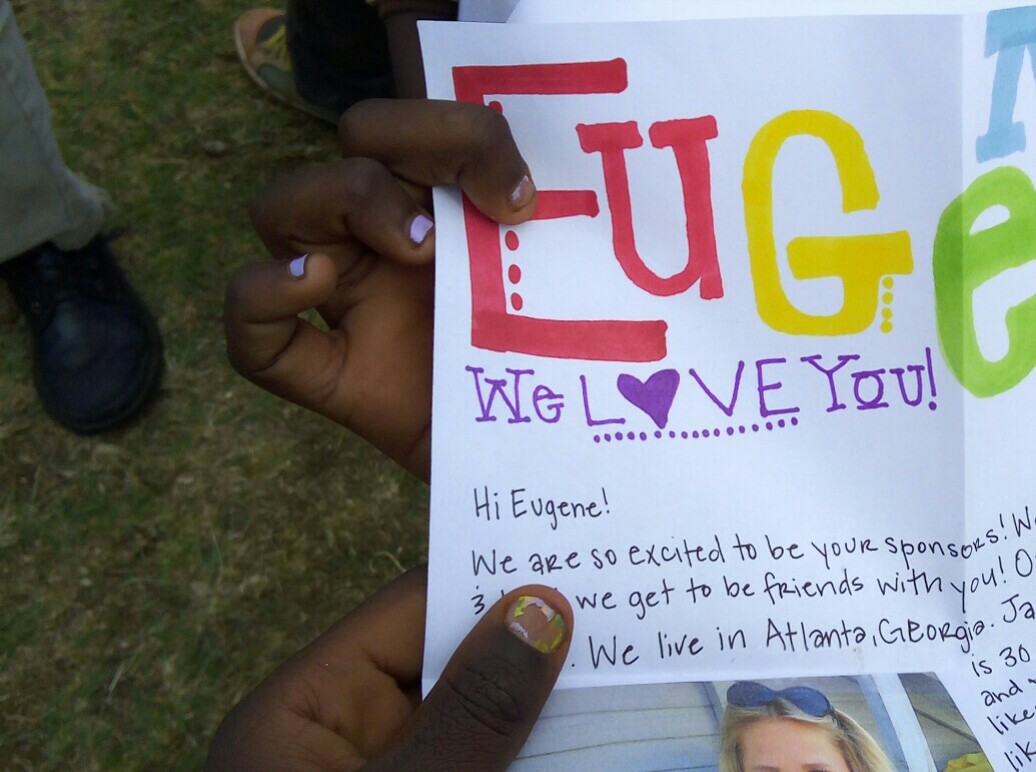 EUGe
We LOVE YOU!
Hi Eugene!
We are so excited to be your sponsors!
we get to be friends with you!
. We live in Atlanta, Georgia. Ja
is 30
and
like
lik